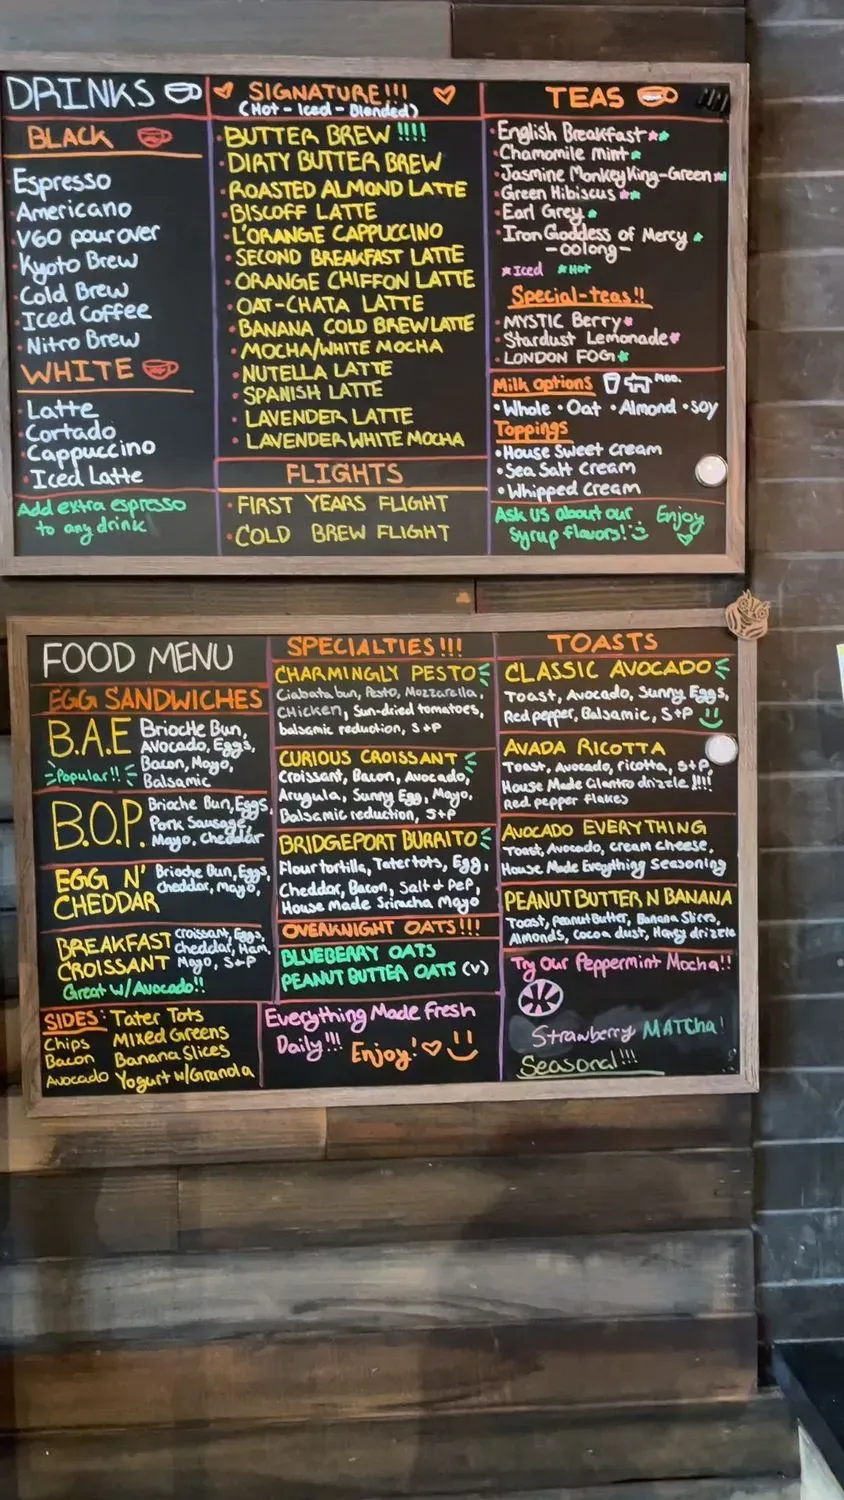 DRINKS
BLACK
Espresso
Americano
V60 pour over
Kyoto Brew
Cold Brew
Iced Coffee
Nitro Brew
WHITE
Latte
Cortado
Cappuccino
Iced Latte
Add extra espresso
to any drink
SIGNATURE!!!
(Hot - Iced - Blended)
BUTTER BREW !!!!
DIRTY BUTTER BREW
ROASTED ALMOND LATTE
BISCOFF LATTE
L'ORANGE CAPPUCCINO
SECOND BREAKFAST LATTE
ORANGE CHIFFON LATTE
OAT-CHATA LATTE
BANANA COLD BREW LATTE
MOCHA/WHITE MOCHA
NUTELLA LATTE
SPANISH LATTE
LAVENDER LATTE
LAVENDER WHITE MOCHA
FLIGHTS
FIRST YEARS FLIGHT
COLD BREW FLIGHT
TEAS
English Breakfast
Chamomile mint
Jasmine Monkey King-Green
Green Hibiscus
Earl Grey
Iron Goddess of Mercy
-oolong-
Iced Hot
Special-teas!!
MYSTIC Berry
Stardust Lemonade
LONDON FOG
Milk options Moo.
•Whole •Oat •Almond •soy
Toppings
•House Sweet cream
•Sea Salt cream
•Whipped cream
Ask us about our
Syrup flavors!
Enjoy
FOOD MENU
EGG SANDWICHES
B.A.E
Popular!!
Brioche Bun,
Avocado, Eggs,
Bacon, Mayo,
Balsamic
B.O.P.
Brioche Bun, Eggs,
Pork Sausage,
Mayo, Cheddar
EGG N'
CHEDDAR
Brioche Bun, Eggs,
Cheddar, Mayo,
BREAKFAST
CROISSANT
Croissant, Eggs,
Cheddar, Ham,
Mayo, S+P
Great w/Avocado!!
SIDES: Tater Tots
Chips Mixed Greens
Bacon Banana Slices
Avocado Yogurt w/Granola
SPECIALTIES!!!
CHARMINGLY PESTO
Ciabata bun, Pesto, Mozzarella,
CHicken, Sun-dried tomatoes,
balsamic reduction, S+P
CURIOUS CROISSANT
Croissant, Bacon, Avocado,
Arugula, Sunny Egg, Mayo,
Balsamic reduction, S+P
BRIDGEPORT BURRITO
Flour tortilla, Tater tots, Egg,
Cheddar, Bacon, Salt & Pep,
House Made Sriracha Mayo
OVERKNIGHT OATS!!!
BLUEBERRY OATS
PEANUT BUTTER OATS (V)
Everything Made Fresh
Daily!!! Enjoy!
TOASTS
CLASSIC AVOCADO
Toast, Avocado, Sunny Eggs,
Red pepper, Balsamic, S+P
AVADA RICOTTA
Toast, Avocado, ricotta, S+P,
House Made Cilantro drizzle !!!!
red pepper flakes
AVOCADO EVERYTHING
Toast, Avocado, cream cheese,
House Made Everything Seasoning
PEANUT BUTTER N BANANA
Toast, Peanut Butter, Banana Slices,
Almonds, Cocoa dust, Honey drizzle
Try Our Peppermint Mocha!!
Strawberry MATCHA!
Seasonal!!!